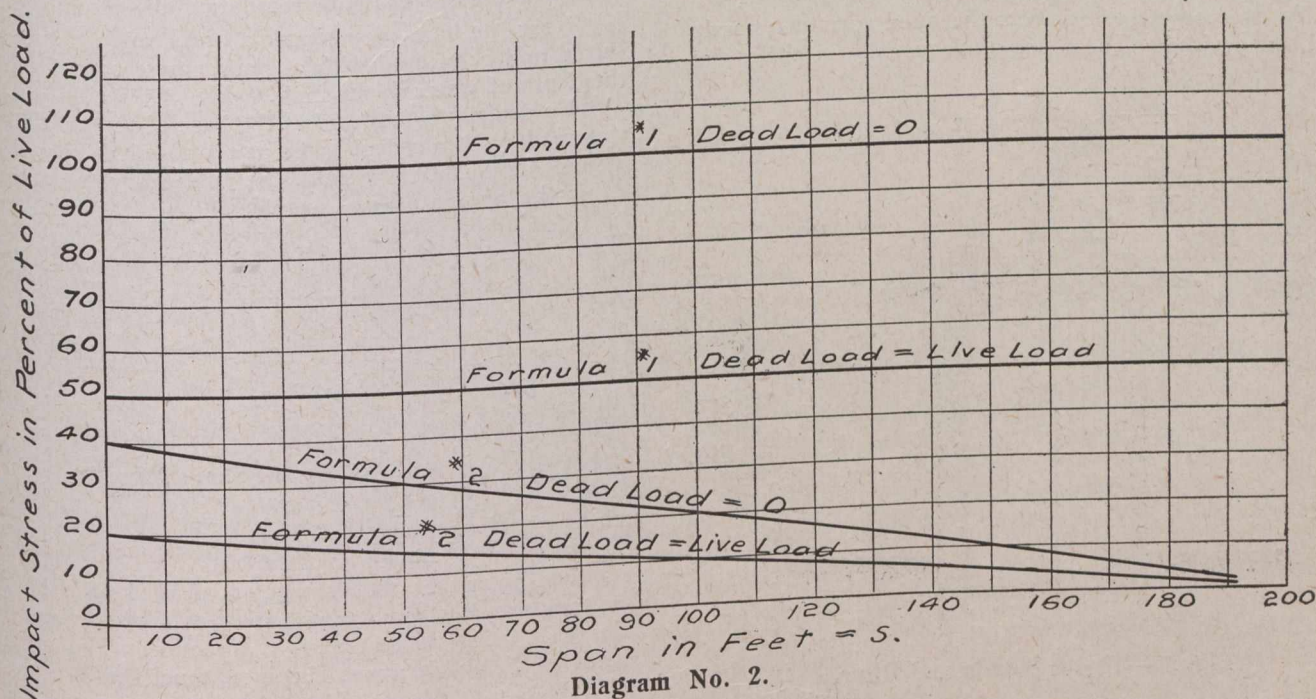 Impact Stress in Percent of Live Load.
120
110
100
90
80
70
60
50
40
30
20
10
0
Formula #1 Dead Load = 0
Formula #1 Dead Load = Live Load
Formula #2 Dead Load = 0
Formula #2 Dead Load = Live Load
10 20 30 40 50 60 70 80 90 100 120 140 160 180 200
Span in Feet = s.
Diagram No. 2.